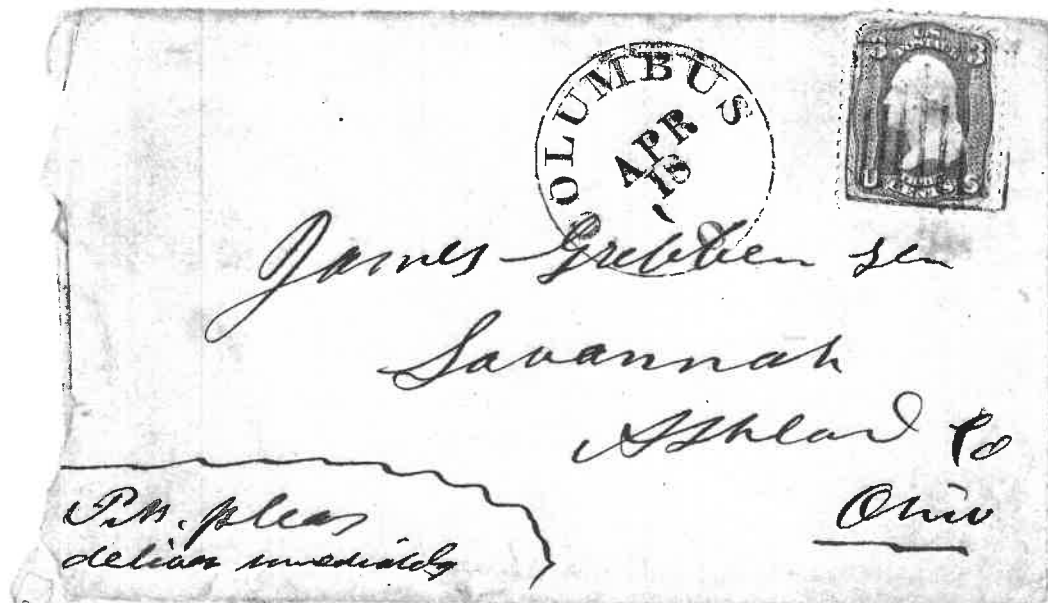 OLUMBUS
APR
18
3 3
U S
James Grebben Sen
Savannah
Ashland Co
Ohio
P.M. pleas
deliver imediately